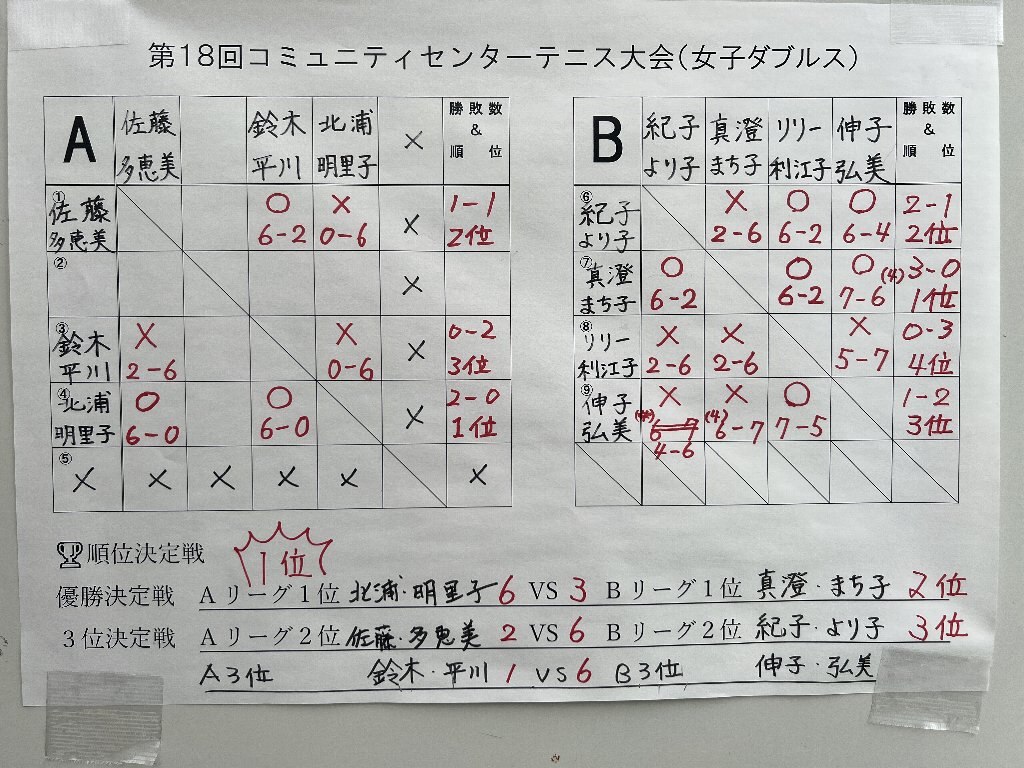 第18回コミュニティセンターテニス大会(女子ダブルス)
A 佐藤 多恵美 鈴木 平川 北浦 明里子 × 勝敗数 & 順位
① 佐藤 多恵美 ○ 6-2 × 0-6 × 1-1 2位
② ×
③ 鈴木 平川 × 2-6 × 0-6 × 0-2 3位
④ 北浦 明里子 ○ 6-0 ○ 6-0 × 2-0 1位
⑤ × × × × × ×
B 紀子 より子 真澄 まち子 リリー 利江子 伸子 弘美 勝敗数 & 順位
⑥ 紀子 より子 × 2-6 ○ 6-2 ○ 6-4 2-1 2位
⑦ 真澄 まち子 ○ 6-2 ○ 6-2 ○ 7-6 (4) 3-0 1位
⑧ リリー 利江子 × 2-6 × 2-6 × 5-7 0-3 4位
⑨ 伸子 弘美 × 6-7 4-6 × (4) 6-7 ○ 7-5 1-2 3位
順位決定戦
1位
優勝決定戦 Aリーグ1位 北浦・明里子 6 VS 3 Bリーグ1位 真澄・まち子 2位
3位決定戦 Aリーグ2位 佐藤・多恵美 2 VS 6 Bリーグ2位 紀子・より子 3位
A3位 鈴木・平川 1 VS 6 B3位 伸子・弘美